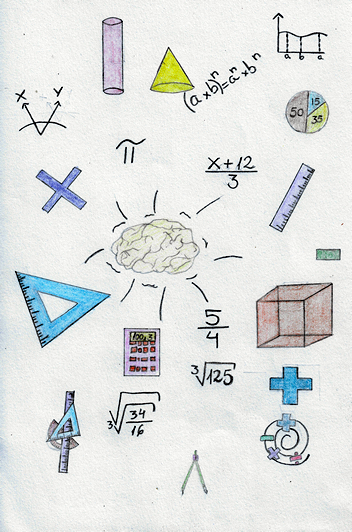 a b a
(a×b)ⁿ=aⁿ×bⁿ
x y
50 15 35
π
x+12
3
5
4
³√125
³√34
16